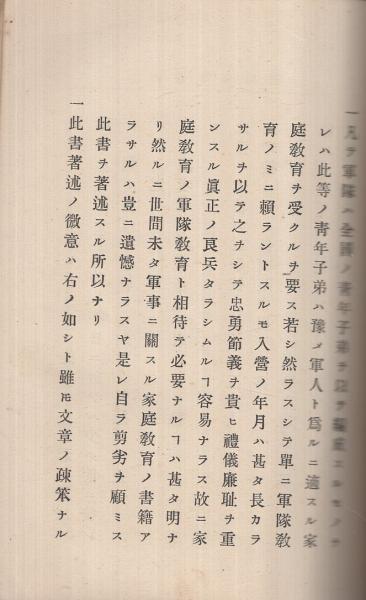 一凡ソ軍隊ハ全國ノ青年子弟ヲ以テ編成スルモノナ
レハ此等ノ青年子弟ハ豫メ軍人ト爲ルニ適スル家
庭敎育ヲ受クルヲ要ス若シ然ラスシテ單ニ軍隊敎
育ノミニ賴ラントスルモ入營ノ年月ハ甚タ長カラ
サルヲ以テ之ヲシテ忠勇節義ヲ貴ヒ禮儀廉耻ヲ重
ンスル眞正ノ良兵タラシムルヿ容易ナラス故ニ家
庭敎育ノ軍隊敎育ト相待テ必要ナルヿハ甚タ明ナ
リ然ルニ世間未タ軍事ニ關スル家庭敎育ノ書籍ア
ラサルハ豈ニ遺憾ナラスヤ是レ自ラ剪劣ヲ顧ミス
此書ヲ著述スル所以ナリ
一此書著述ノ微意ハ右ノ如シト雖𪜈文章ノ疎笨ナル